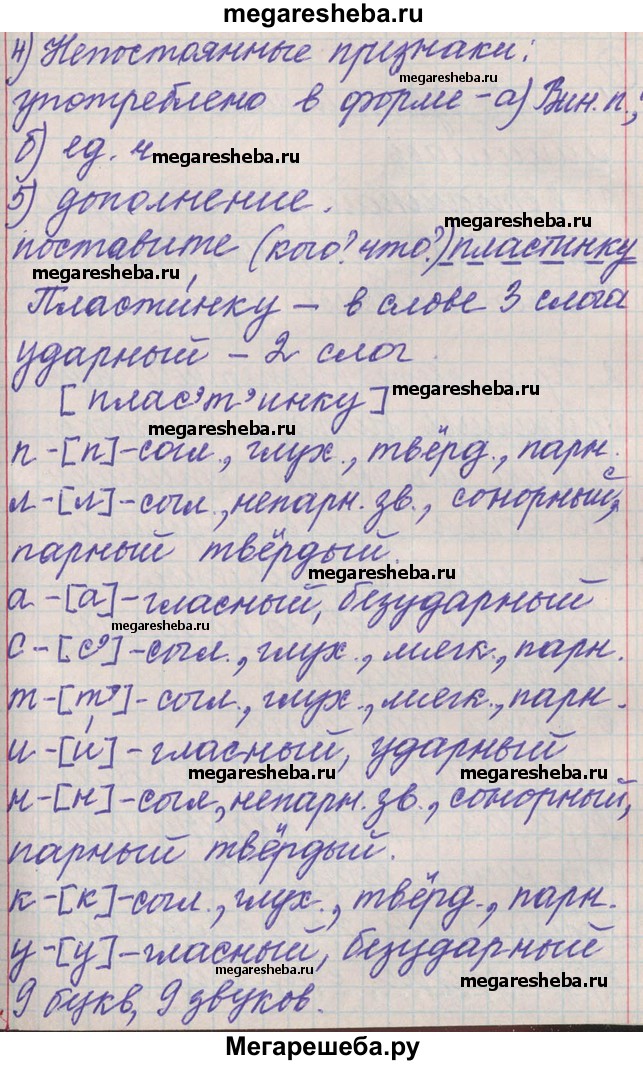 megaresheba.ru
4) Непостоянные признаки:
megaresheba.ru
употреблено в форме - а) Вин. п.,
б) ед. ч
megaresheba.ru
5) дополнение.
megaresheba.ru
поставите (кого? что?) пластинку
megaresheba.ru
Пласти́нку – в слове 3 слога
ударный – 2 слог.
[плас’т’инку]
megaresheba.ru
megaresheba.ru
п - [п] - согл., глух., твёрд., парн.
л - [л] - согл., непарн. зв., сонорный,
парный твёрдый.
megaresheba.ru
а - [а] - гласный, безударный
megaresheba.ru
с - [с’] - согл., глух., мягк., парн.
т - [т’] - согл., глух., мягк., парн.
и - [и́] - гласный, ударный
megaresheba.ru
megaresheba.ru
н - [н] - согл, непарн. зв., сонорный,
парный твёрдый.
к - [к] - согл., глух., твёрд., парн.
у - [у] - гласный, безударный
megaresheba.ru
megaresheba.ru
9 букв, 9 звуков.
Мегарешеба.ру